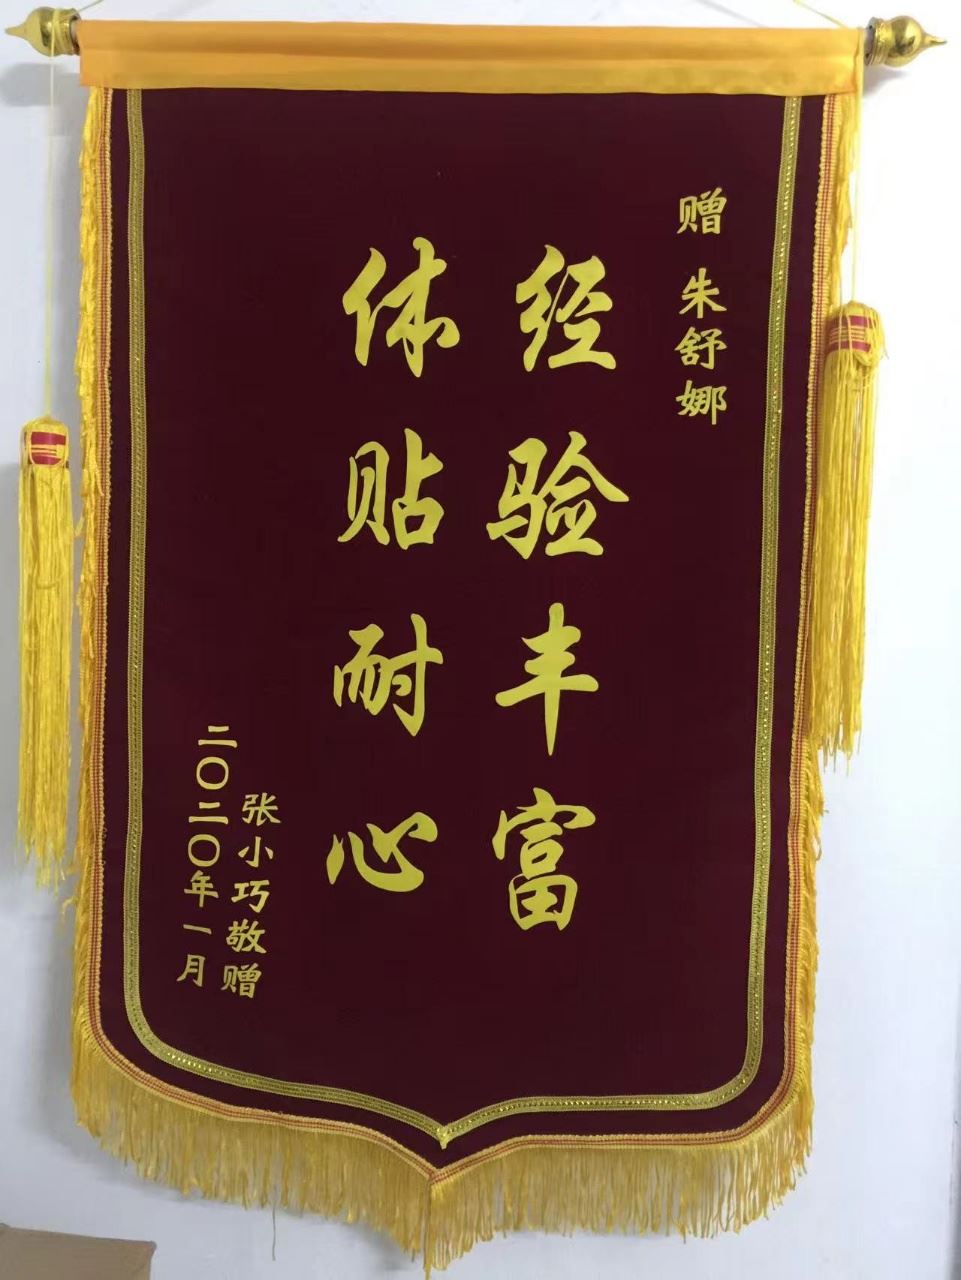 赠 朱舒娜
经验丰富
体贴耐心
张小巧敬赠
二〇二〇年一月